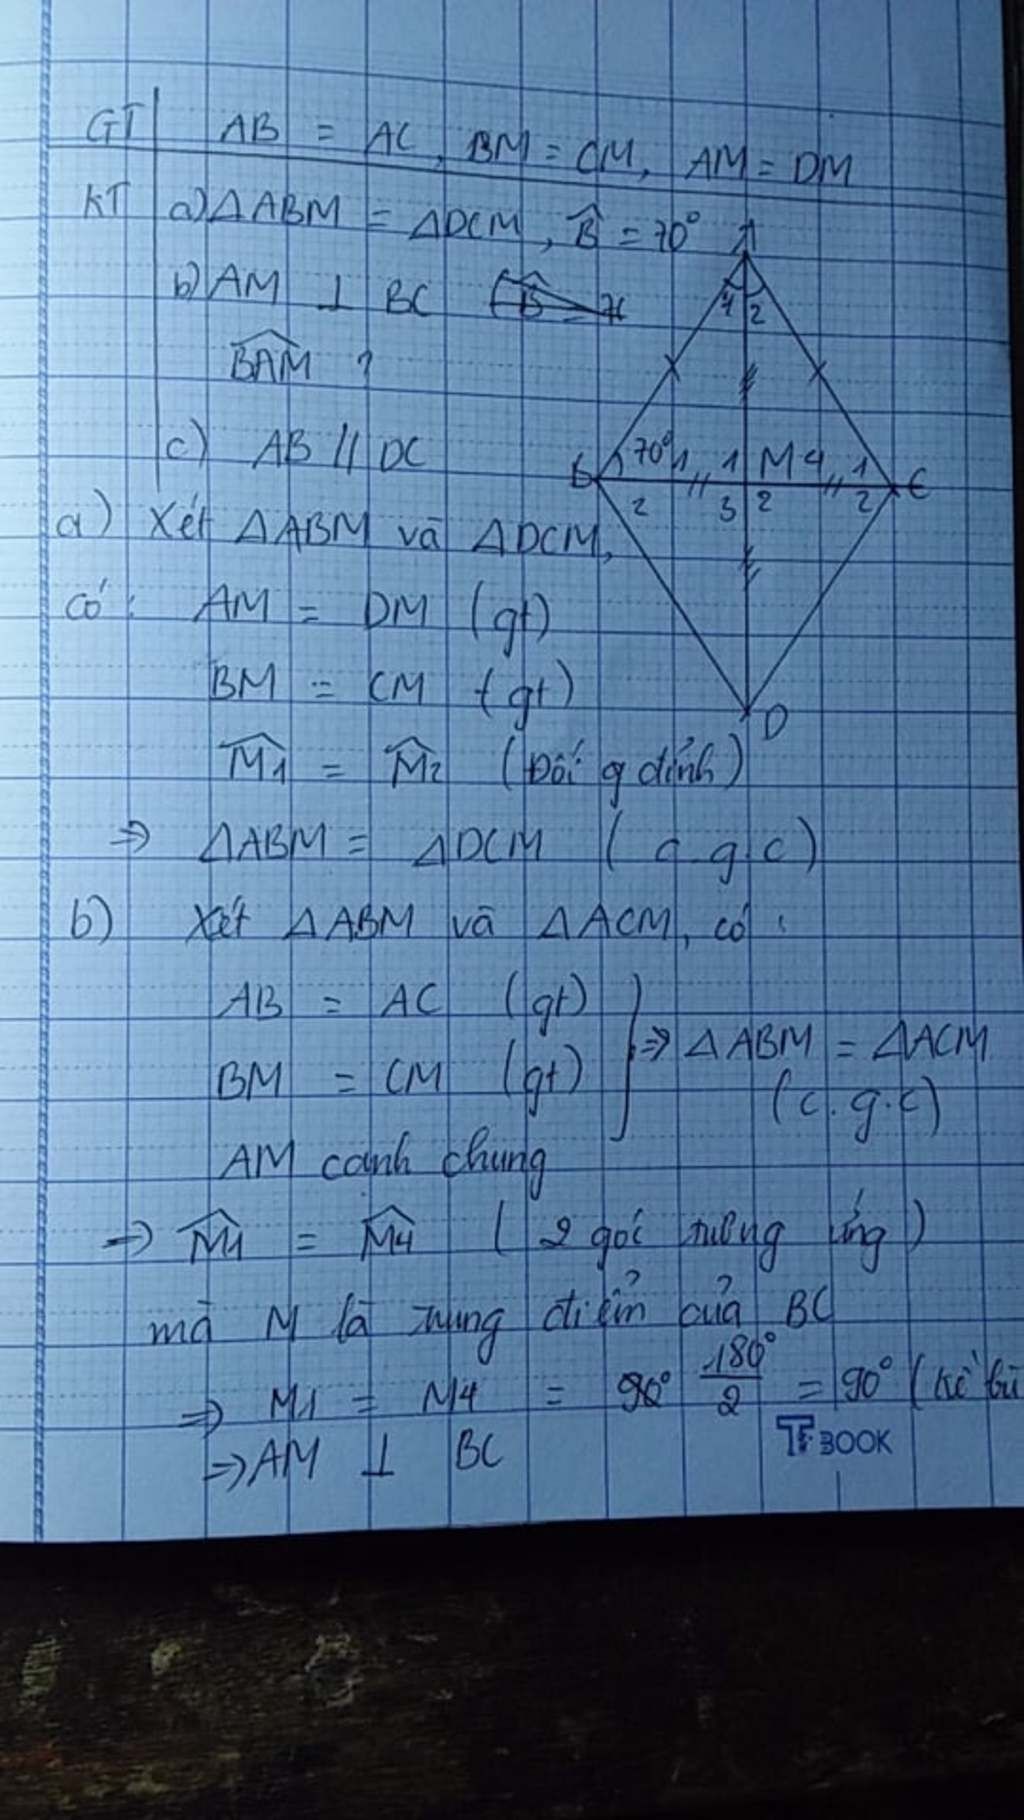 GT AB = AC, BM = CM, AM = DM
KT a) ΔABM = ΔDCM, B̂ = 70°
b) AM ⊥ BC
BAM ?
c) AB // DC
A
1 2
B 70° 1 1 M 4 1 C
2 3 2 2
D
a) Xét ΔABM và ΔDCM,
có: AM = DM (gt)
BM = CM (gt)
M̂1 = M̂2 (Đối g đỉnh)
⇒ ΔABM = ΔDCM (c g.c)
b) Xét ΔABM và ΔACM, có:
AB = AC (gt)
BM = CM (gt)
AM cạnh chung
⇒ ΔABM = ΔACM
(c.g.c)
⇒ M̂1 = M̂4 (2 góc tương ứng)
mà M là trung điểm của BC
⇒ M1 = M4 = 90° 180°/2 = 90° (kề bù
⇒ AM ⊥ BC
BOOK